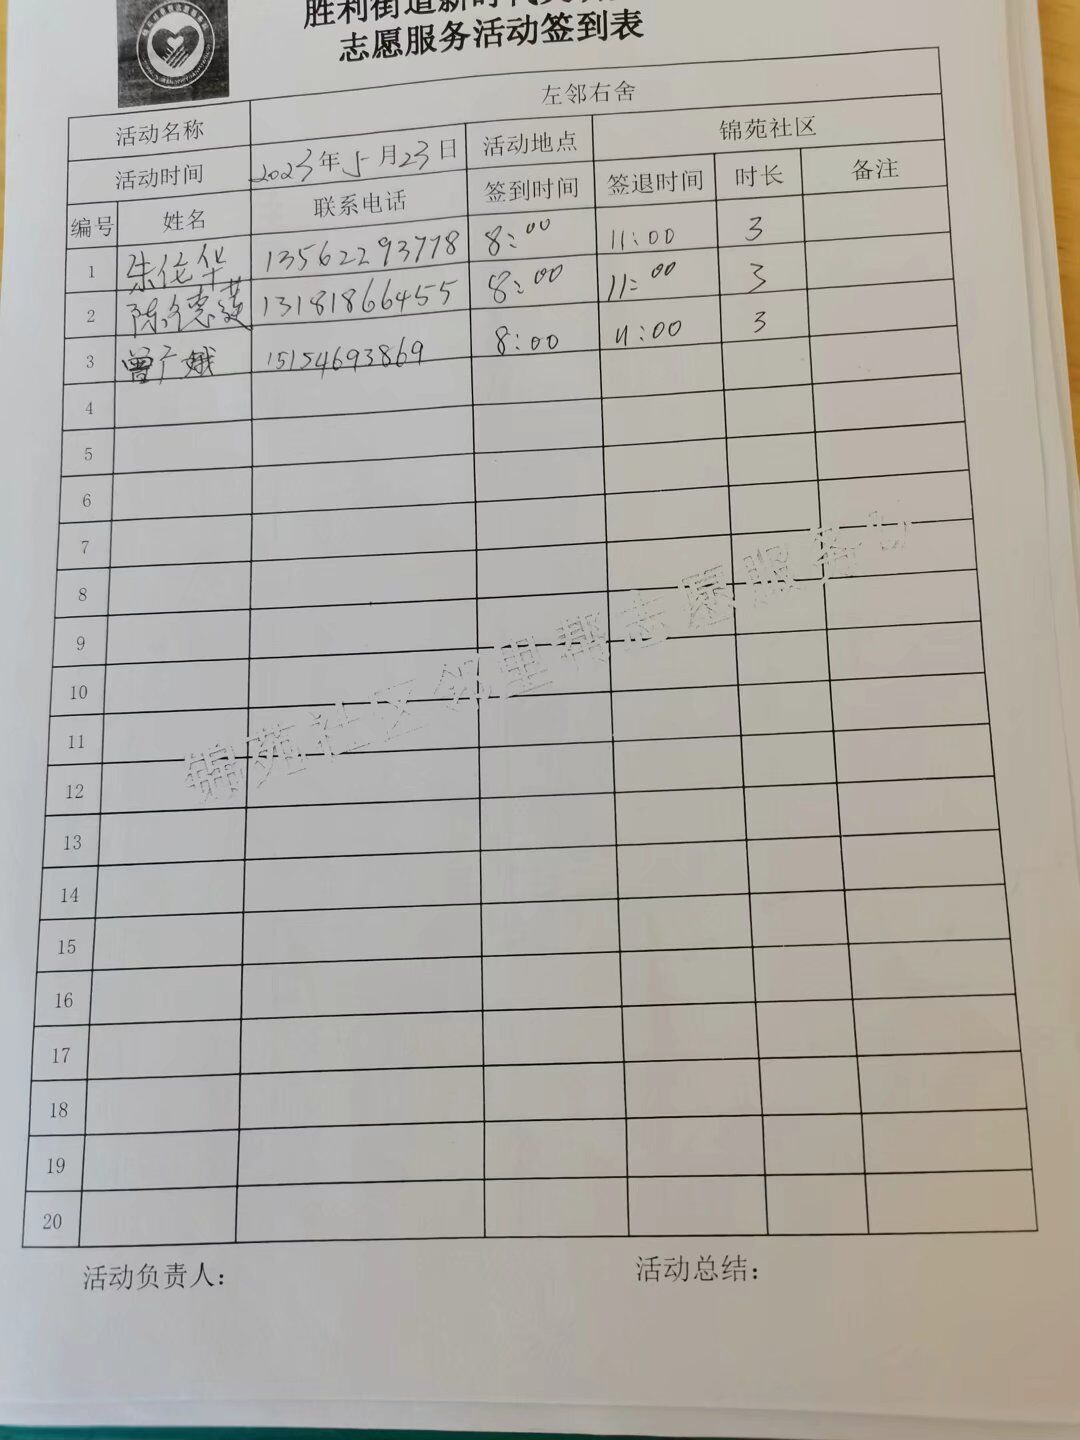 胜利街道新时代文明
志愿服务活动签到表
活动名称 左邻右舍
活动时间 2023年5月23日 活动地点 锦苑社区
编号 姓名 联系电话 签到时间 签退时间 时长 备注
1 朱俊华 13562293778 8:00 11:00 3
2 陈德英 13181866455 8:00 11:00 3
3 曾广娥 15154693869 8:00 11:00 3
4
5
6
7
8
9
10
11
12
13
14
15
16
17
18
19
20
锦苑社区邻里帮志愿服务
活动负责人： 活动总结：